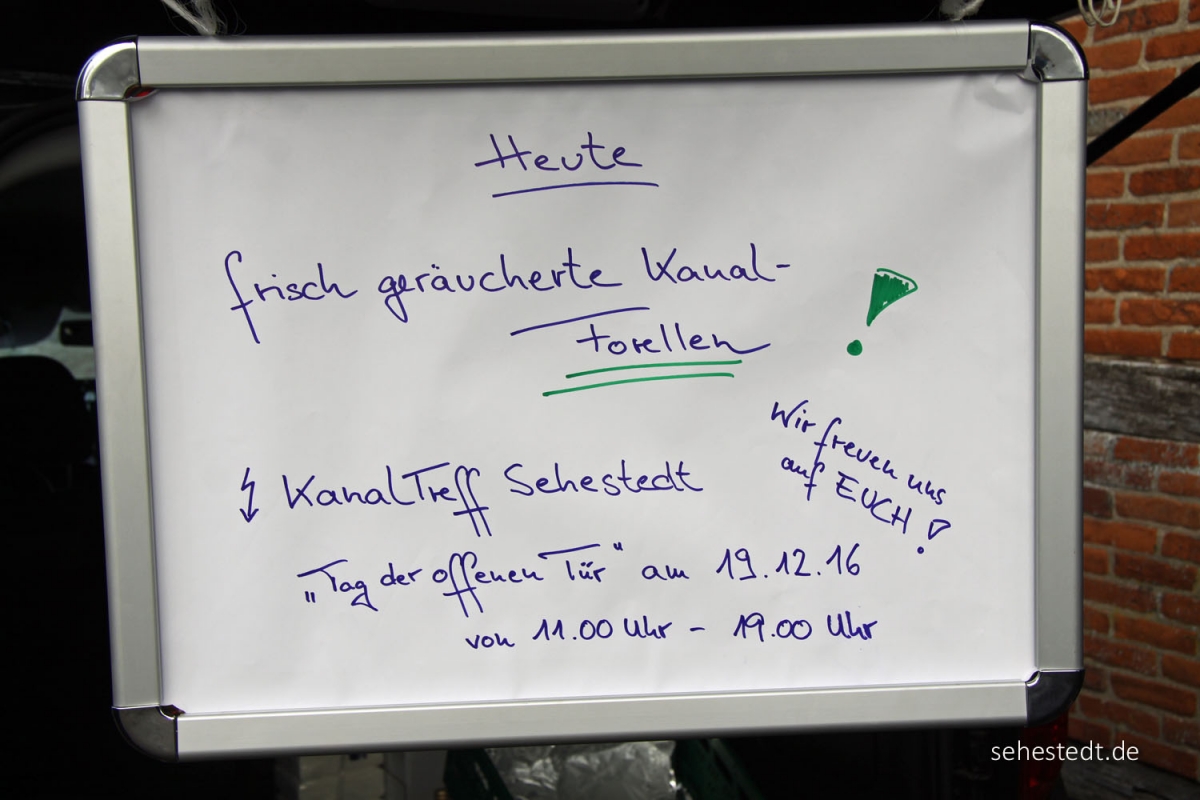 Heute
frisch geräucherte Kanal-
forellen !
Wir freuen uns
auf EUCH !
KanalTreff Sehestedt
„Tag der offenen Tür" am 19.12.16
von 11.00 Uhr - 19.00 Uhr
sehestedt.de